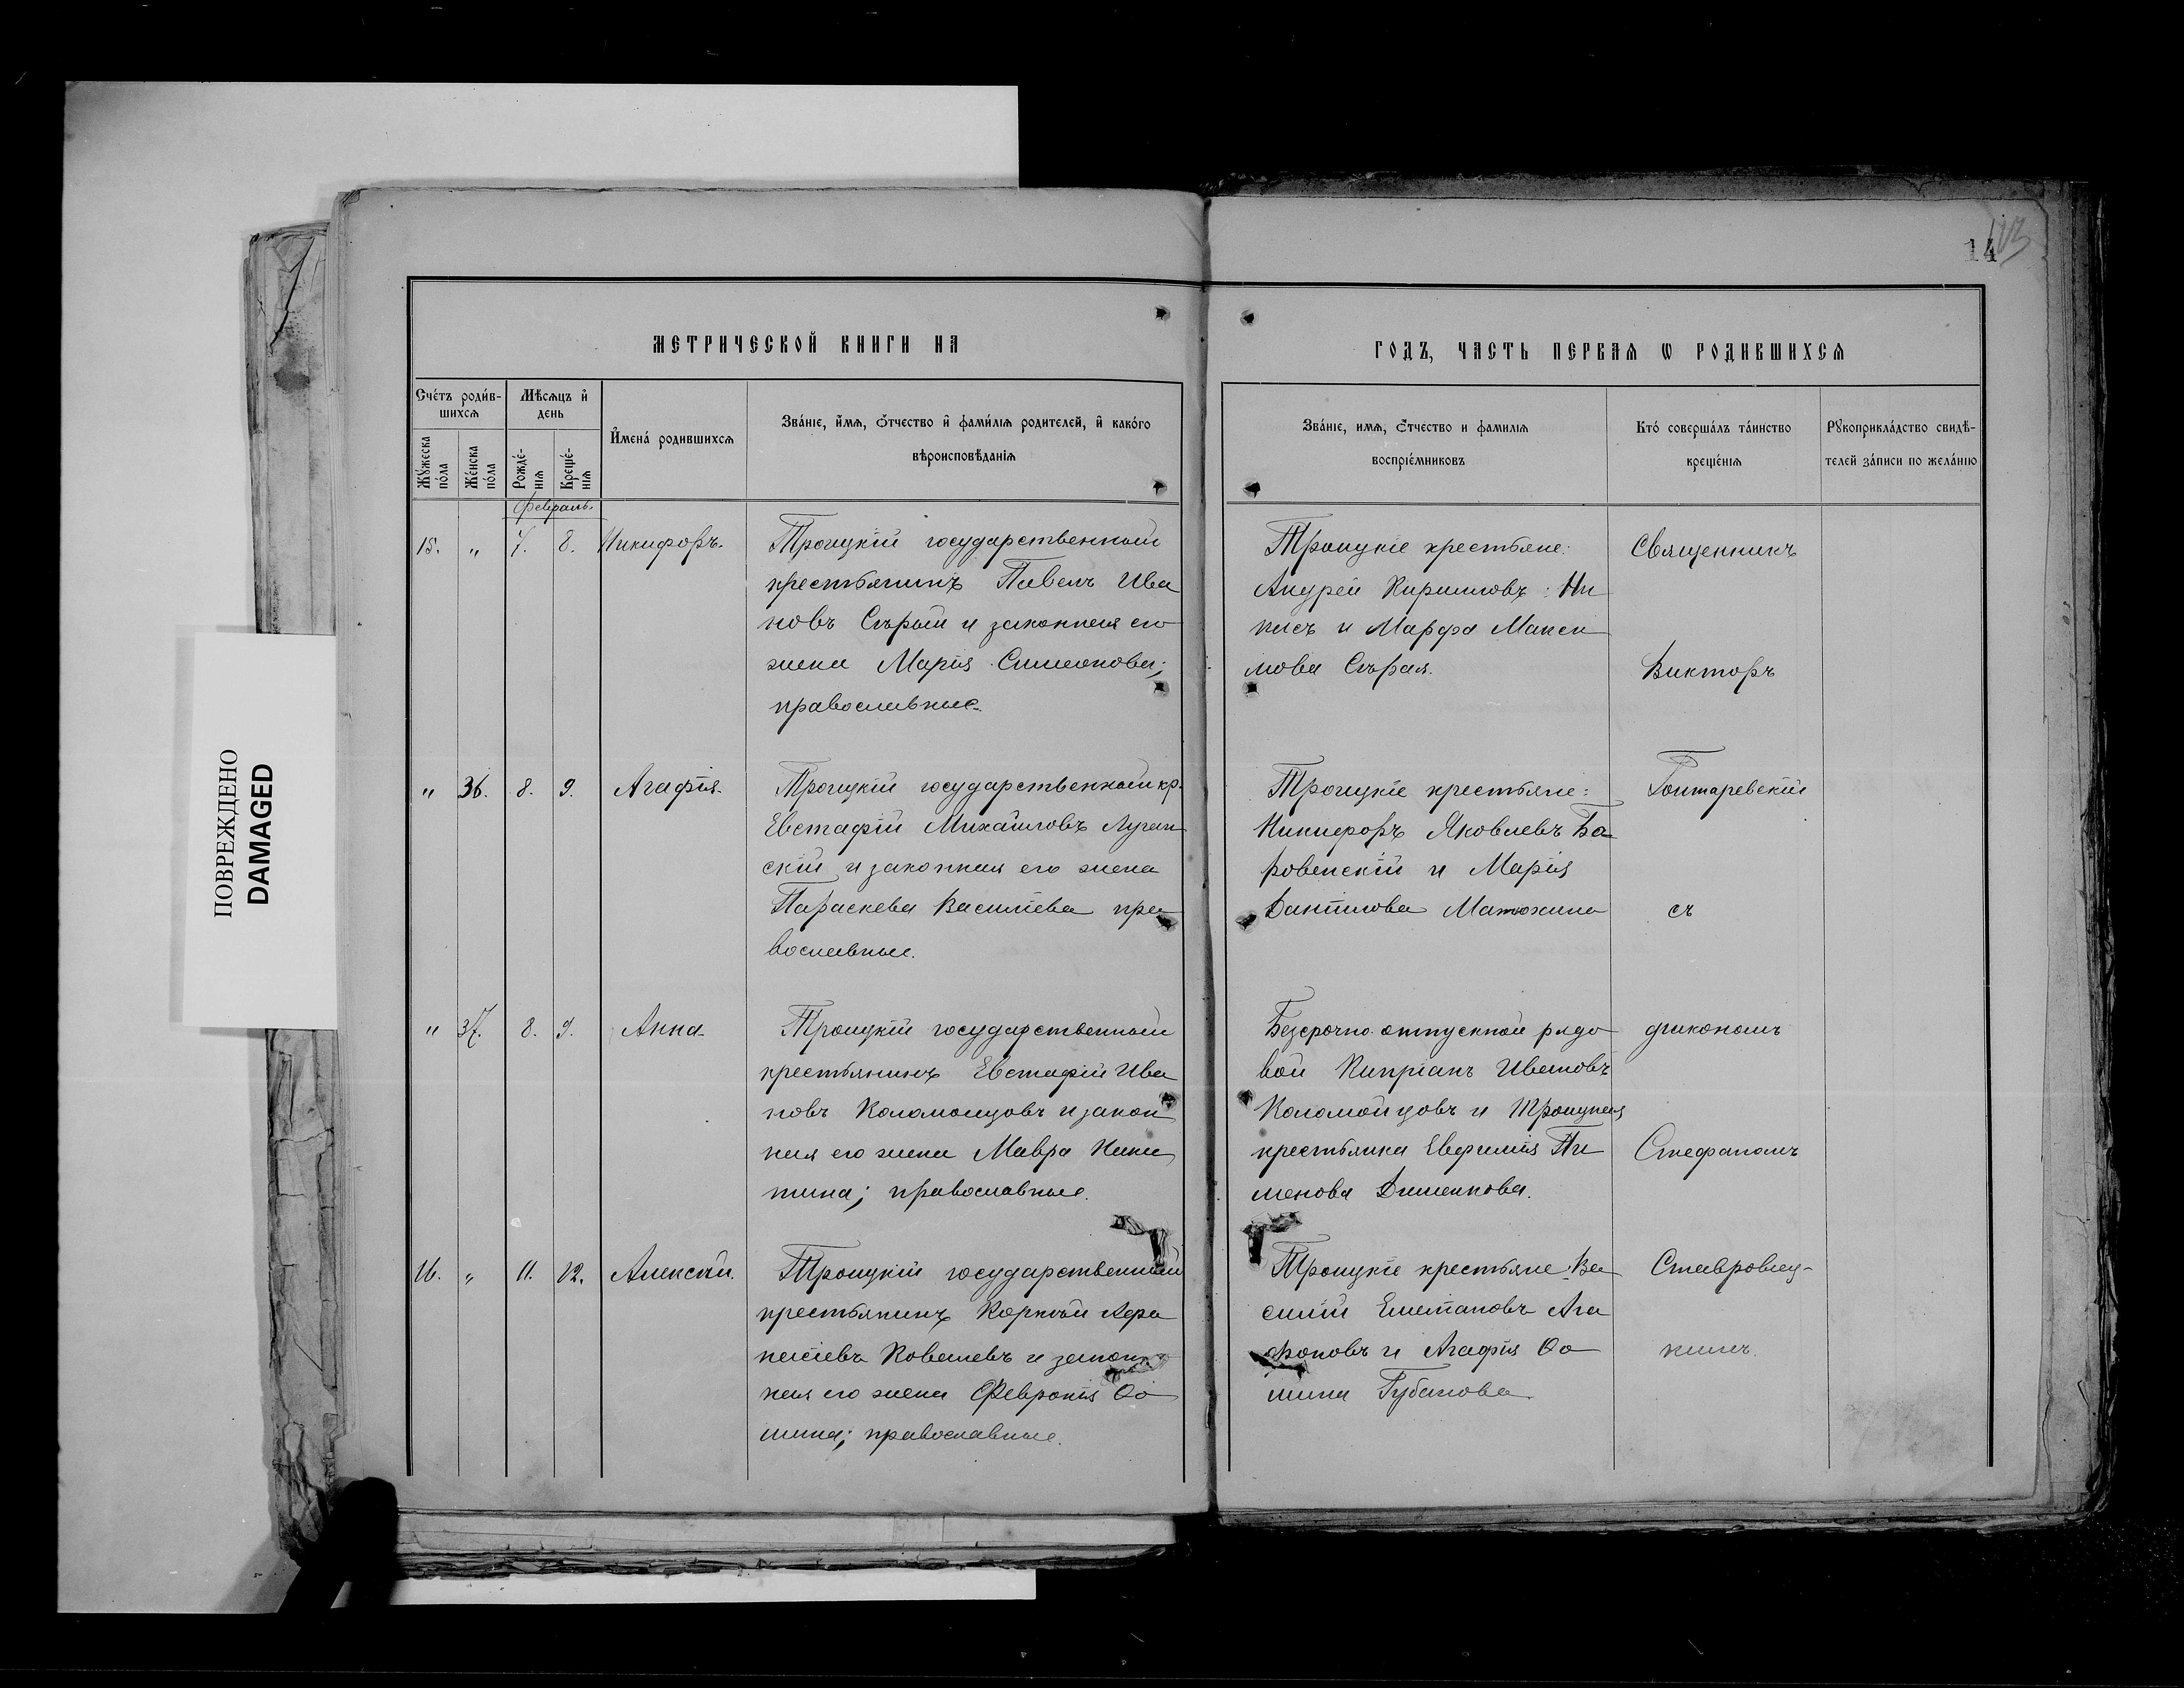 14
13
ПОВРЕЖДЕНО
DAMAGED
МЕТРИЧЕСКОЙ КНИГИ НА
ГОДЪ, ЧАСТЬ ПЕРВАЯ Ѡ РОДИВШИХСЯ
Счетъ родив-
шихся
Мѣсяцъ и
день
Мужеска
пола
Женска
пола
Рожде-
нія
Креще-
нія
Имена родившихся
Званіе, имя, отчество и фамилія родителей, и какого
вѣроисповѣданія
Званіе, имя, отчество и фамилія
воспріемниковъ
Кто совершалъ таинство
крещенія
Рукоприкладство свидѣ-
телей записи по желанію
Февраль.
15. " 7. 8. Никифоръ.
Троицкій государственный
крестьянинъ Павелъ Ива
новъ Сѣрый и законная его
жена Марія Симеонова;
православные.
Троицкіе крестьяне:
Андрей Кирилловъ
и Марфа Макси
мова Сѣрая.
Священникъ
Викторъ
" 36. 8. 9. Агафія.
Троицкій государственный кр.
Евстафій Михайловъ Луган
скій и законная его жена
Параскева Василіева пра
вославные.
Троицкіе крестьяне:
Никифоръ Яковлевъ Ба
ровенскій и Марія
Даніилова Матюхина
Гонтаревскій
съ
" 37. 8. 9. Анна.
Троицкій государственный
крестьянинъ Евстафій Ива
новъ Коломойцовъ и закон
ная его жена Мавра Ники
тина; православные.
Безсрочно-отпускной рядо
вой Кипріанъ Ивановъ
Коломойцовъ и Троицкая
крестьянка Евфимія Пи
менова Дименкова.
діакономъ
Стефаномъ
16. " 11. 12. Алексѣй.
Троицкій государственный
крестьянинъ Корнилій Афа
насіевъ Ковалевъ и закон
ная его жена Февронія Ѳо
мина; православные.
Троицкіе крестьяне: Ва
силій Ага
фоновъ и Агафія Ѳо
мина Губанова
Ставровец-
кимъ.